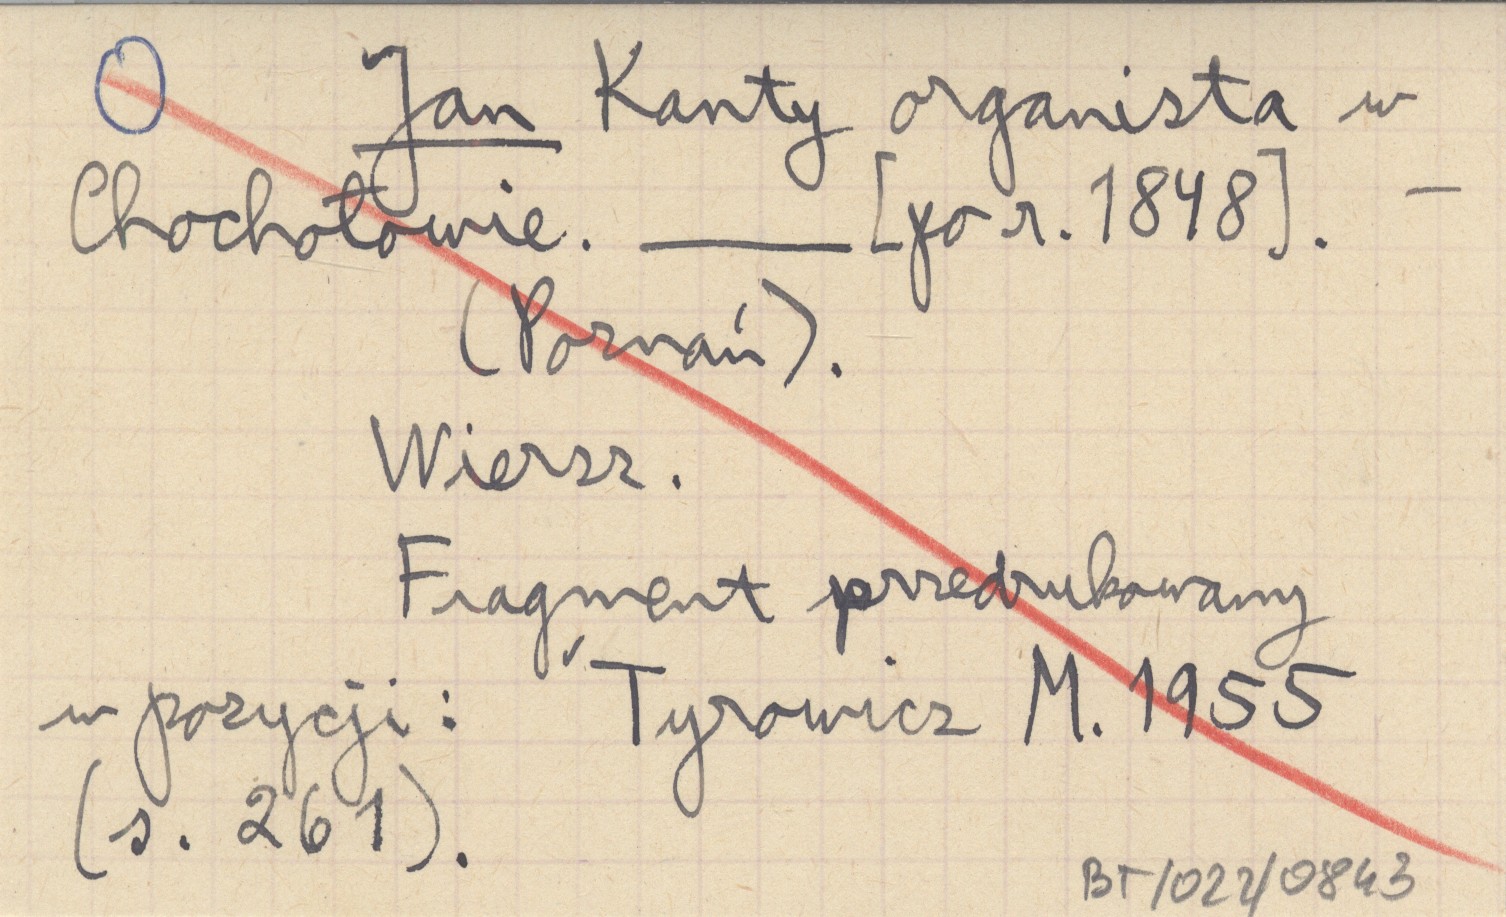 O Jan Kanty organista w
Chochołowie. ——— [po r. 1848]. —
(Poznań).
Wiersz.
Fragment przedrukowany
w pozycji: Tyrowicz M. 1955
(s. 261).
BT/022/0843